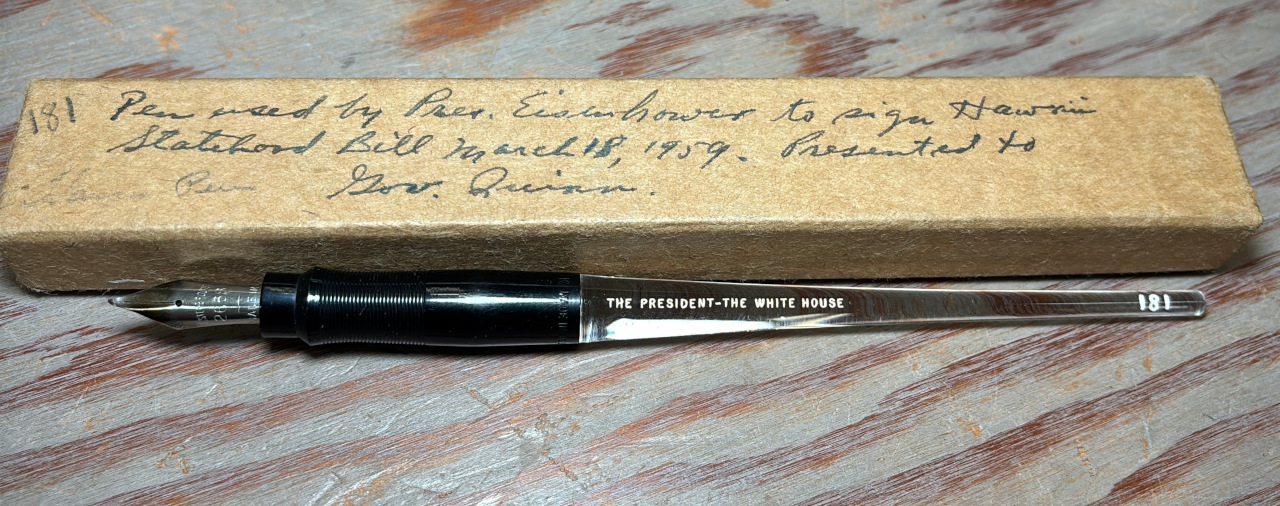 181 Pen used by Pres. Eisenhower to sign Hawaii
Statehood Bill March 18, 1959. Presented to
Pen Gov. Quinn.
THE PRESIDENT-THE WHITE HOUSE
181